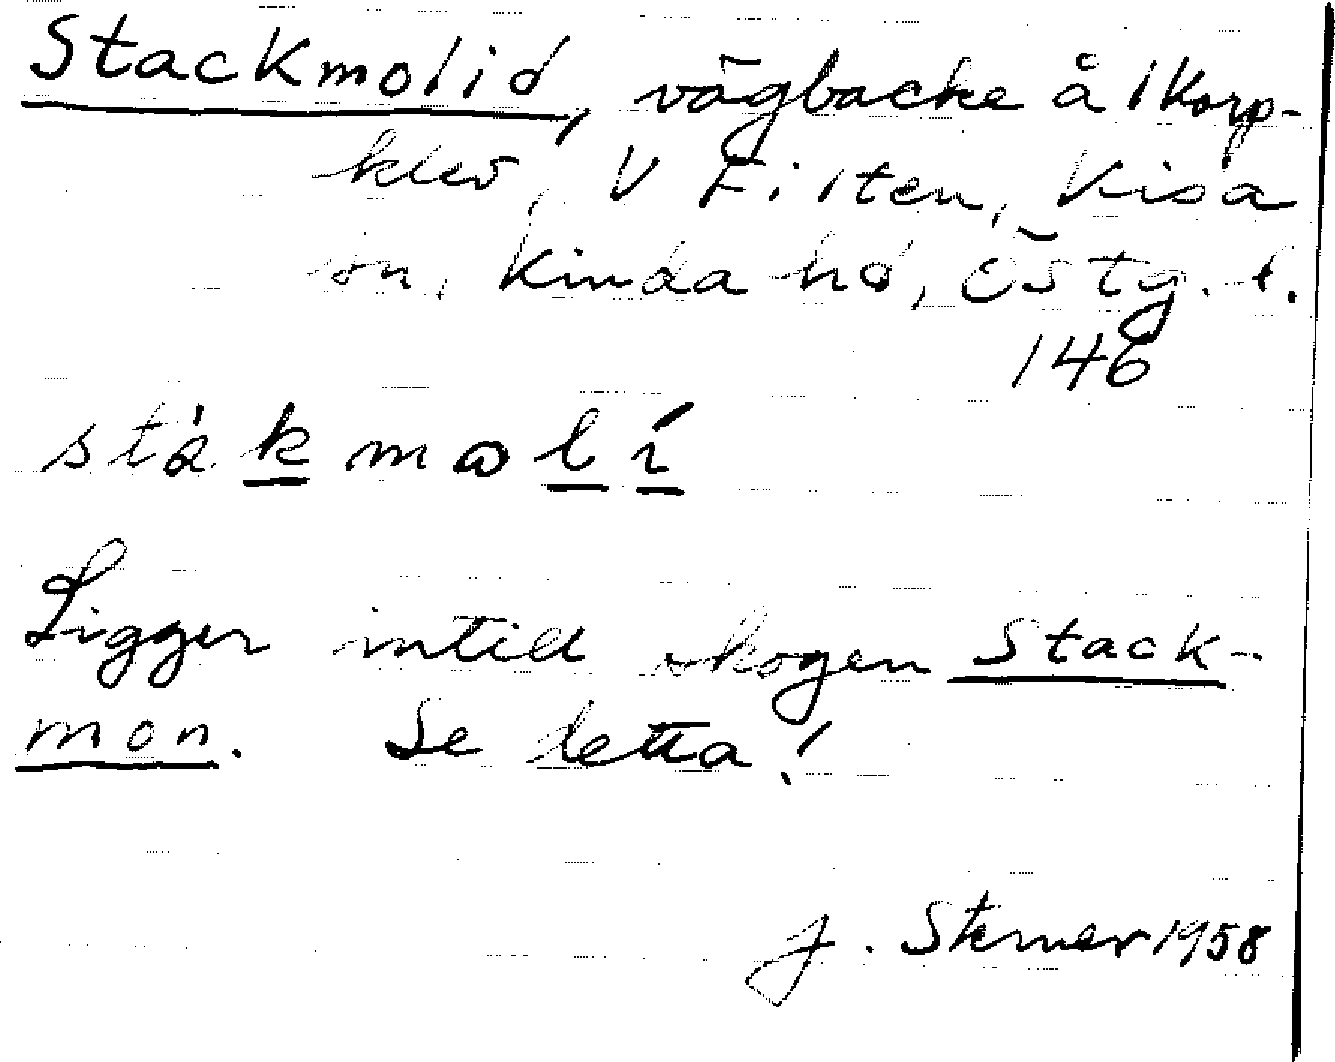 Stackmolid, vägbacke å 1 Korp-
klev, V Eilten, Kisa
sn, Kinda hd, Östg. l.
146
stàkmolí
Ligger intill skogen Stack-
mon. Se detta!
J. Sterner 1958